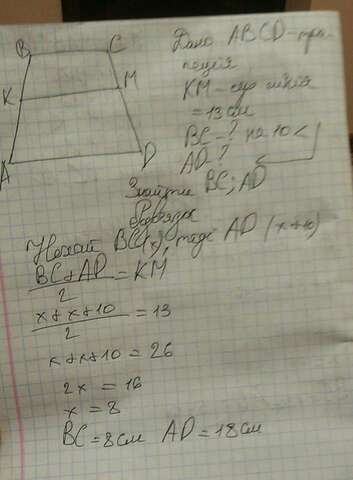 B C
K M
A D
Дано ABCD - тра-
пеція
KM - сер лінія
= 13 см
BC - ? на 10 <
AD ?
Знайти BC; AD
Розвязок
Нехай BC (x), тоді AD (x+10)
BC + AD / 2 = KM
x + x + 10 / 2 = 13
x + x + 10 = 26
2x = 16
x = 8
BC = 8 см AD = 18 см